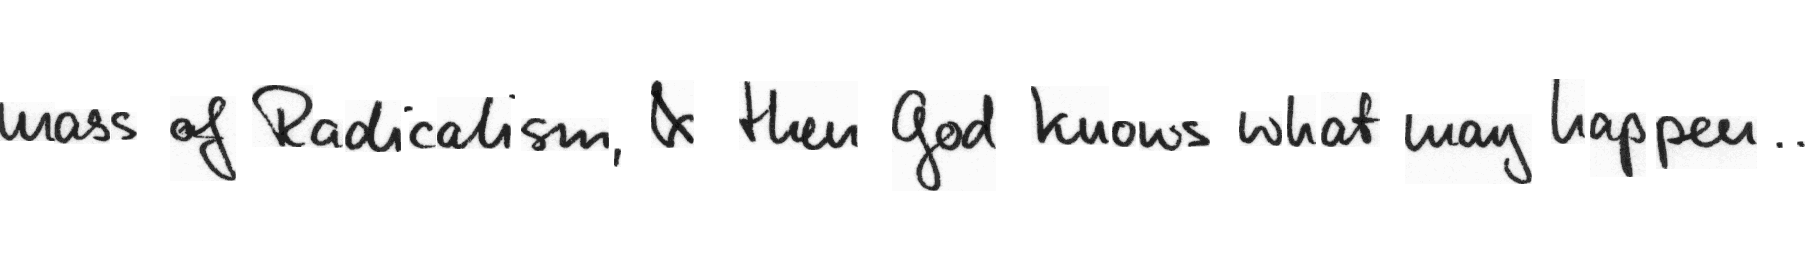 mass of Radicalism, & then God knows what may happen..